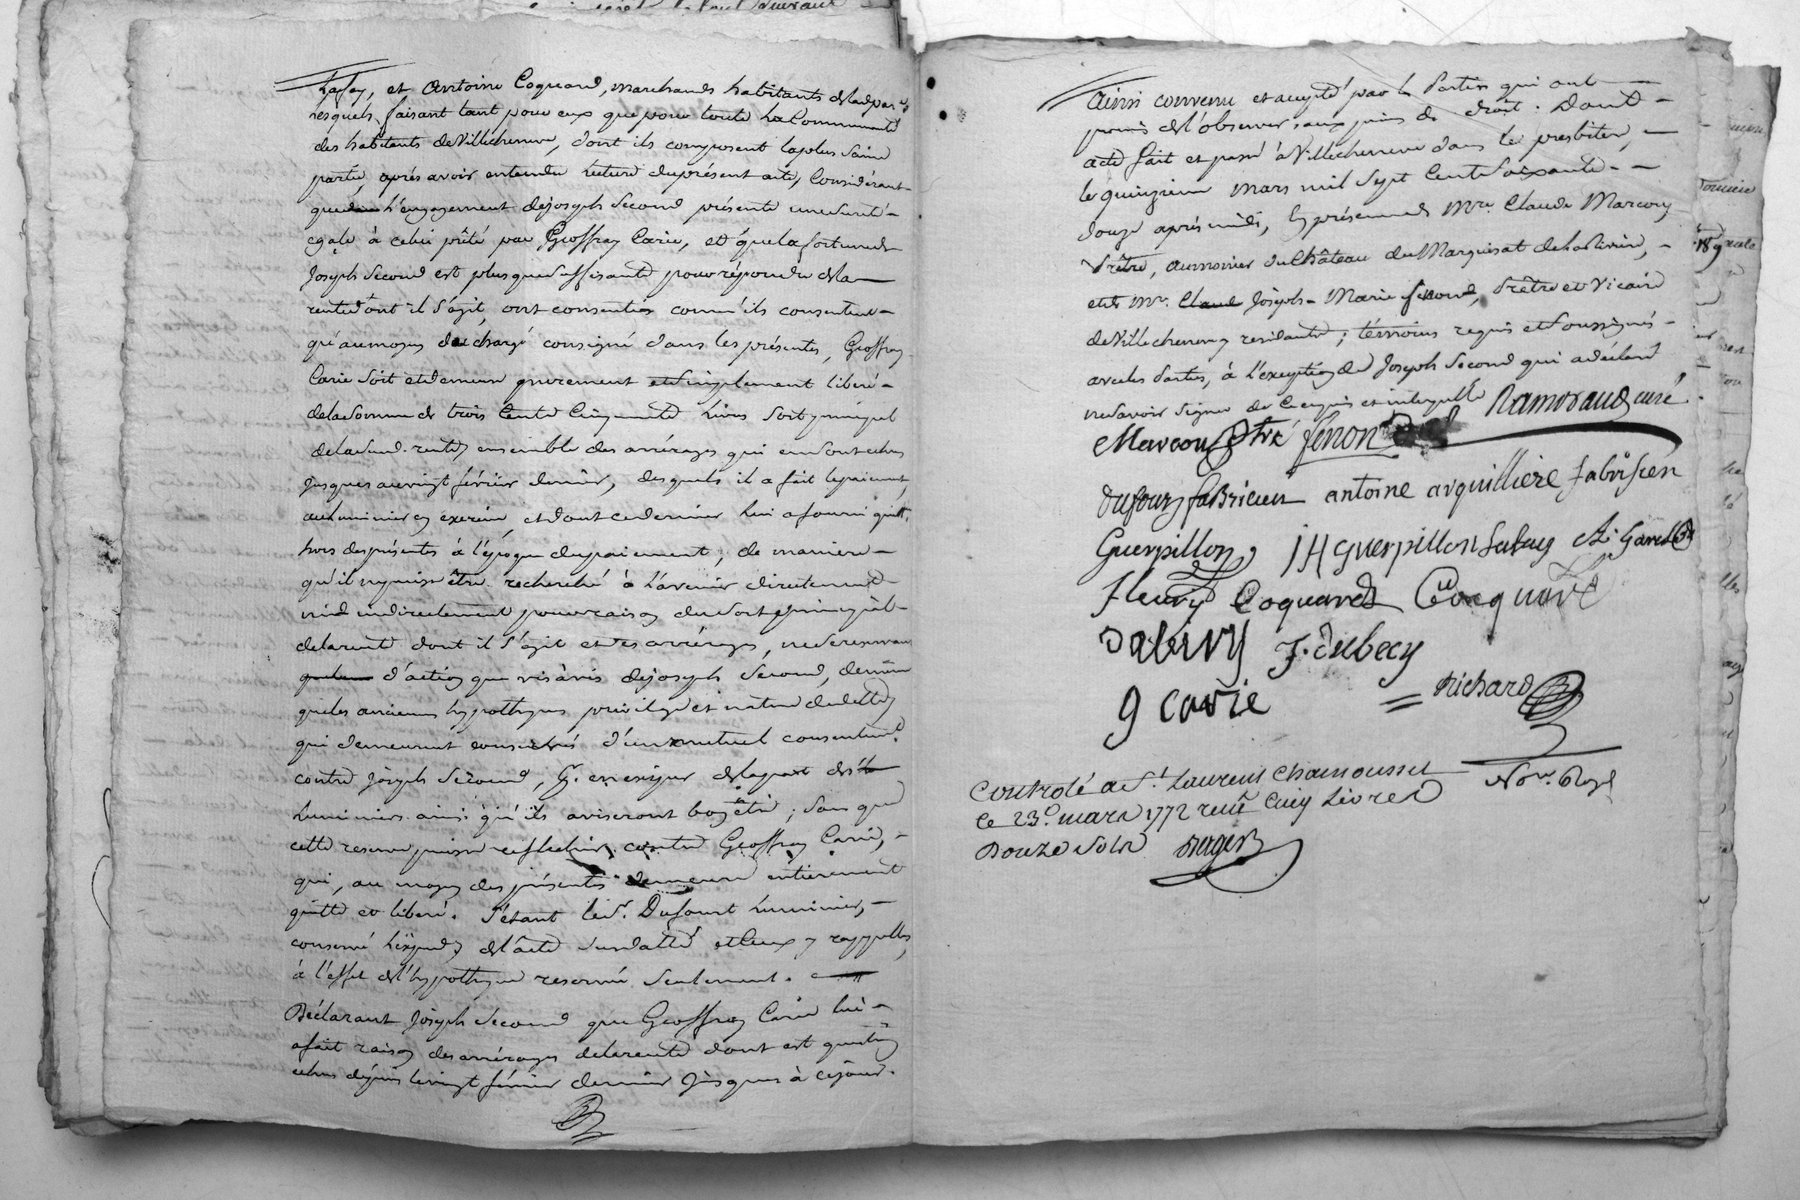 et Antoine Coquard, marchands habitants
lesquels faisant tant pour eux que pour toute la Communauté
des habitants de Villecheneve, dont ils composent la plus saine
partie, après avoir entendu lecture du présent acte, Considérant
que l'engagement de joseph Second présente une sureté
egale à celui prêté par Geoffray Carie, et que la fortune de
Joseph Second est plus que suffisante pour répondre de la
rente dont il s'agit, ont consenti comm'ils consentent
qu'au moyen de chargé consigné dans les présentes, Geoffray
Carie soit et demeure purement et simplement liberé
de la somme de trois Cents Cinquante livres sort principal
de la rente ensemble des arrérages qui en sont echus
jusques au vingt février dernier, desquels il a fait le paiement
au luminier en exercice, et dont ce dernier lui a fourni quitt.
hors des présentes à l'époque du paiement; de maniere
qu'il ne puisse être recherché à l'avenir directement
ni indirectement pour raison du sort principal
de la rente dont il s'agit et des arrérages, ne se reservant
d'action que vis à vis de joseph Second, demême
que les anciens hypotheques privilege et nature de dette
qui demeurent conservés d'un mutuel consentemt.
contre Joseph Second, de la part des
luminiers ainsi qu'ils aviseront bon être; sans que
cette reserve puisse reflechir contre Geoffray Carie,
qui, au moyen des présentes demeure entierement
quitte et liberé. S'étant le d. Sr. Dufourt luminier,
conservé de l'acte susdatté et Ceux y rappellés,
à l'effet de l'hypotheque reservée seulement.
Déclarant Joseph Second que Geoffray Carie lui
a fait raison des arrérages de la rente dont est question
echus depuis le vingt février dernier jusques à ce jour.
Ainsi convenu et accepté par les Parties qui ont
promis de l'observer aux peines de droit. Dont
acte fait et passé à Villecheneve dans le presbitere,
le quinzieme mars mil Sept Cents Soixante
douze après midi, En présence de Mre. Claude Marcoux
Prêtre, aumonier du Château du Marquisat de
et de Mr. Claude Joseph-Marie Simond, Prêtre et Vicaire
de Villecheneve y residants; témoins requis et soussignés
avec les Parties, à l'exception de Joseph Second qui a déclaré
ne savoir signer de ce enquis et interpellé Ramoraud curé
Marcoux ptre Simon
dufour fabricien antoine arquilliere fabrisien
Guerpillon J H Guerpillon
Fleury Coquard Cocquard
J. dubecy
g carie Richard
Nore. Royal
Controlé a St. Laurent Chamousset
le 23e. mars 1772 reçu Cinq Livres
Douze Sols Roger